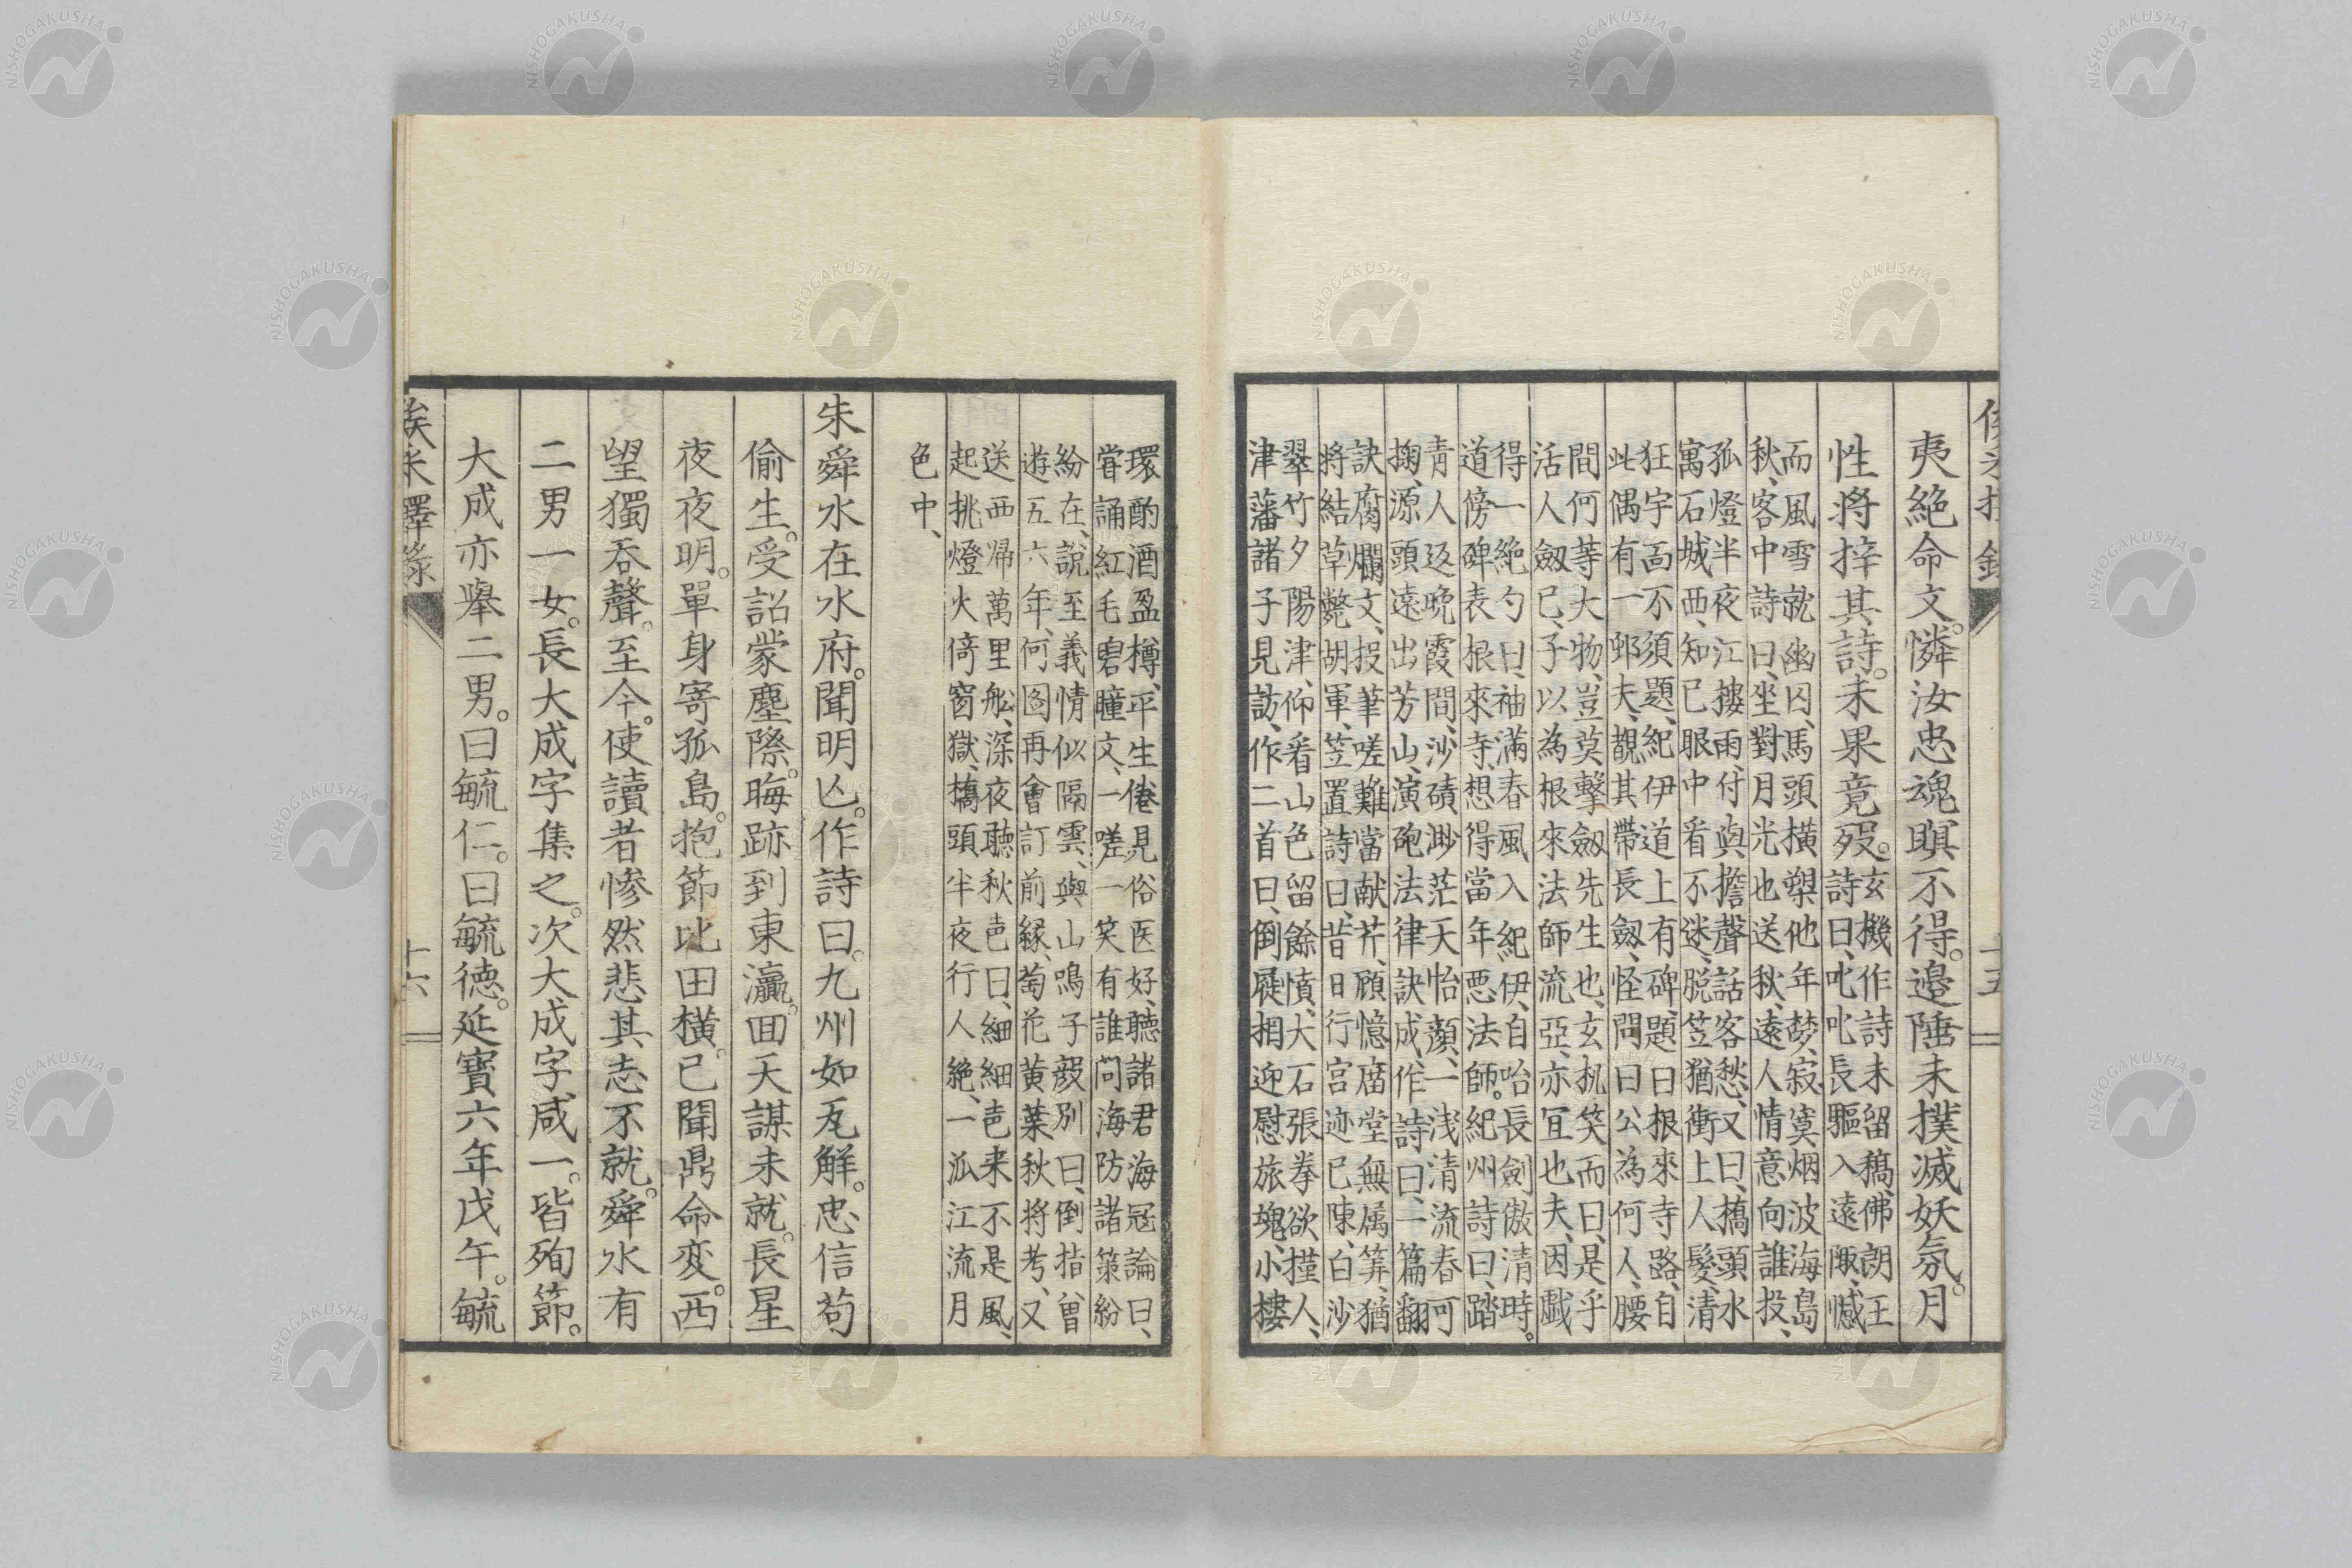 夷絶命文。憐汝忠魂瞑不得。邉陲未撲滅妖氛。月
性将梓其詩。未果竟歿。
玄機作詩未留稿、佛朗王
詩曰、叱叱長驅入遠陬、憾
而風雪就幽囚、馬頭横槊他年夢、寂寞烟波海島
秋、客中詩曰、坐對月光也送秋、遠人情意向誰投、
孤燈半夜江樓雨、付與擔聲話客愁、又曰、橋頭水
寓石城西、知已眼中看不迷、脱笠猶衝上人髮、清
狂宇高不須題、紀伊道上有碑、題曰根來寺路、自
此偶有一郎夫、覩其帶長劔、怪問曰公為何人、腰
間何等大物、豈莫撃劔先生也、玄机笑而曰、是乎
活人劔已、子以為根來法師流亞、亦冝也夫、因戯
得一絶勺曰、袖滿春風入紀伊、自咍長劍傲清時。
道傍碑表根來寺、想得當年悪法師。紀州詩曰、踏
青人返晩霞間、沙磧渺茫天怡顔、一淺清流春可
掬、源頭遠出芳山、演砲法律訣成、作詩曰、一篇翻
訣腐爛文、投筆嗟難當献芹、顧憶腐堂無属筭、猶
將結草斃胡軍、笠置詩曰、昔日行宮迹已陳、白沙
翠竹夕陽津、仰看山色留餘憤、大石張拳欲搓人、
津藩諸子見訪、作二首曰、倒屣相迎慰旅魂、小樓
環酌酒盈樽、平生倦見俗医好、聽諸君海冦論曰、
甞誦紅毛碧瞳文、一嗟一笑有誰問海防諸策紛
紛在、説至義情似隔雲、與山鳴子毅別曰、倒指曽
遊五六年、何圖再會訂前縁、萄花黄葉秋将考、又
送西帰萬里舩、深夜聽秋芭曰、細細芭来不是風、
起挑燈火倚窗獄、橋頭半夜行人絶、一派江流月
色中、
朱舜水在水府。聞明亾。作詩曰。九州如瓦解。忠信苟
偷生。受詔蒙塵際。晦跡到東瀛。囬天謀未就。長星
夜夜明。單身寄孤島。抱節比田横。已聞鼎命変。西
望獨呑聲。至今。使讀者惨然悲其志不就。舜水有
二男一女。長大成字集之。次大成字咸一。皆殉節。
大成亦舉二男。曰毓仁。曰毓徳。延寶六年戊午。毓
十六